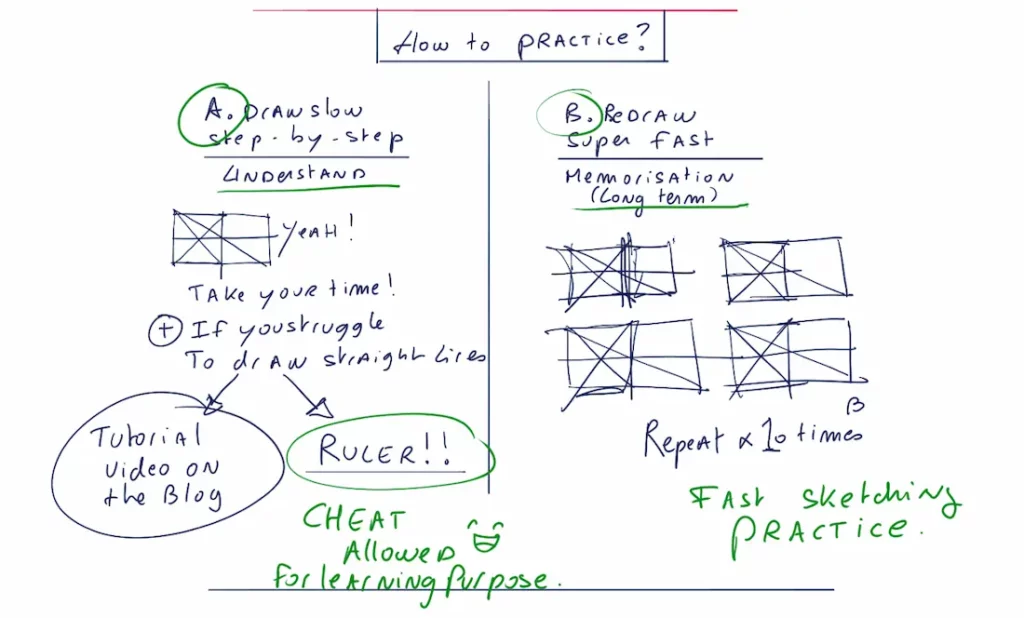 How to PRACTICE?
A. Draw slow
step-by-step
Understand
YEAH!
Take your time!
+ If you struggle
To draw straight lines
Tutorial
video on
the Blog
RULER!!
CHEAT
Allowed
for learning purpose.
B. Redraw
super fast
Memorisation
(Long term)
B
Repeat x 10 times
Fast sketching
PRACTICE.